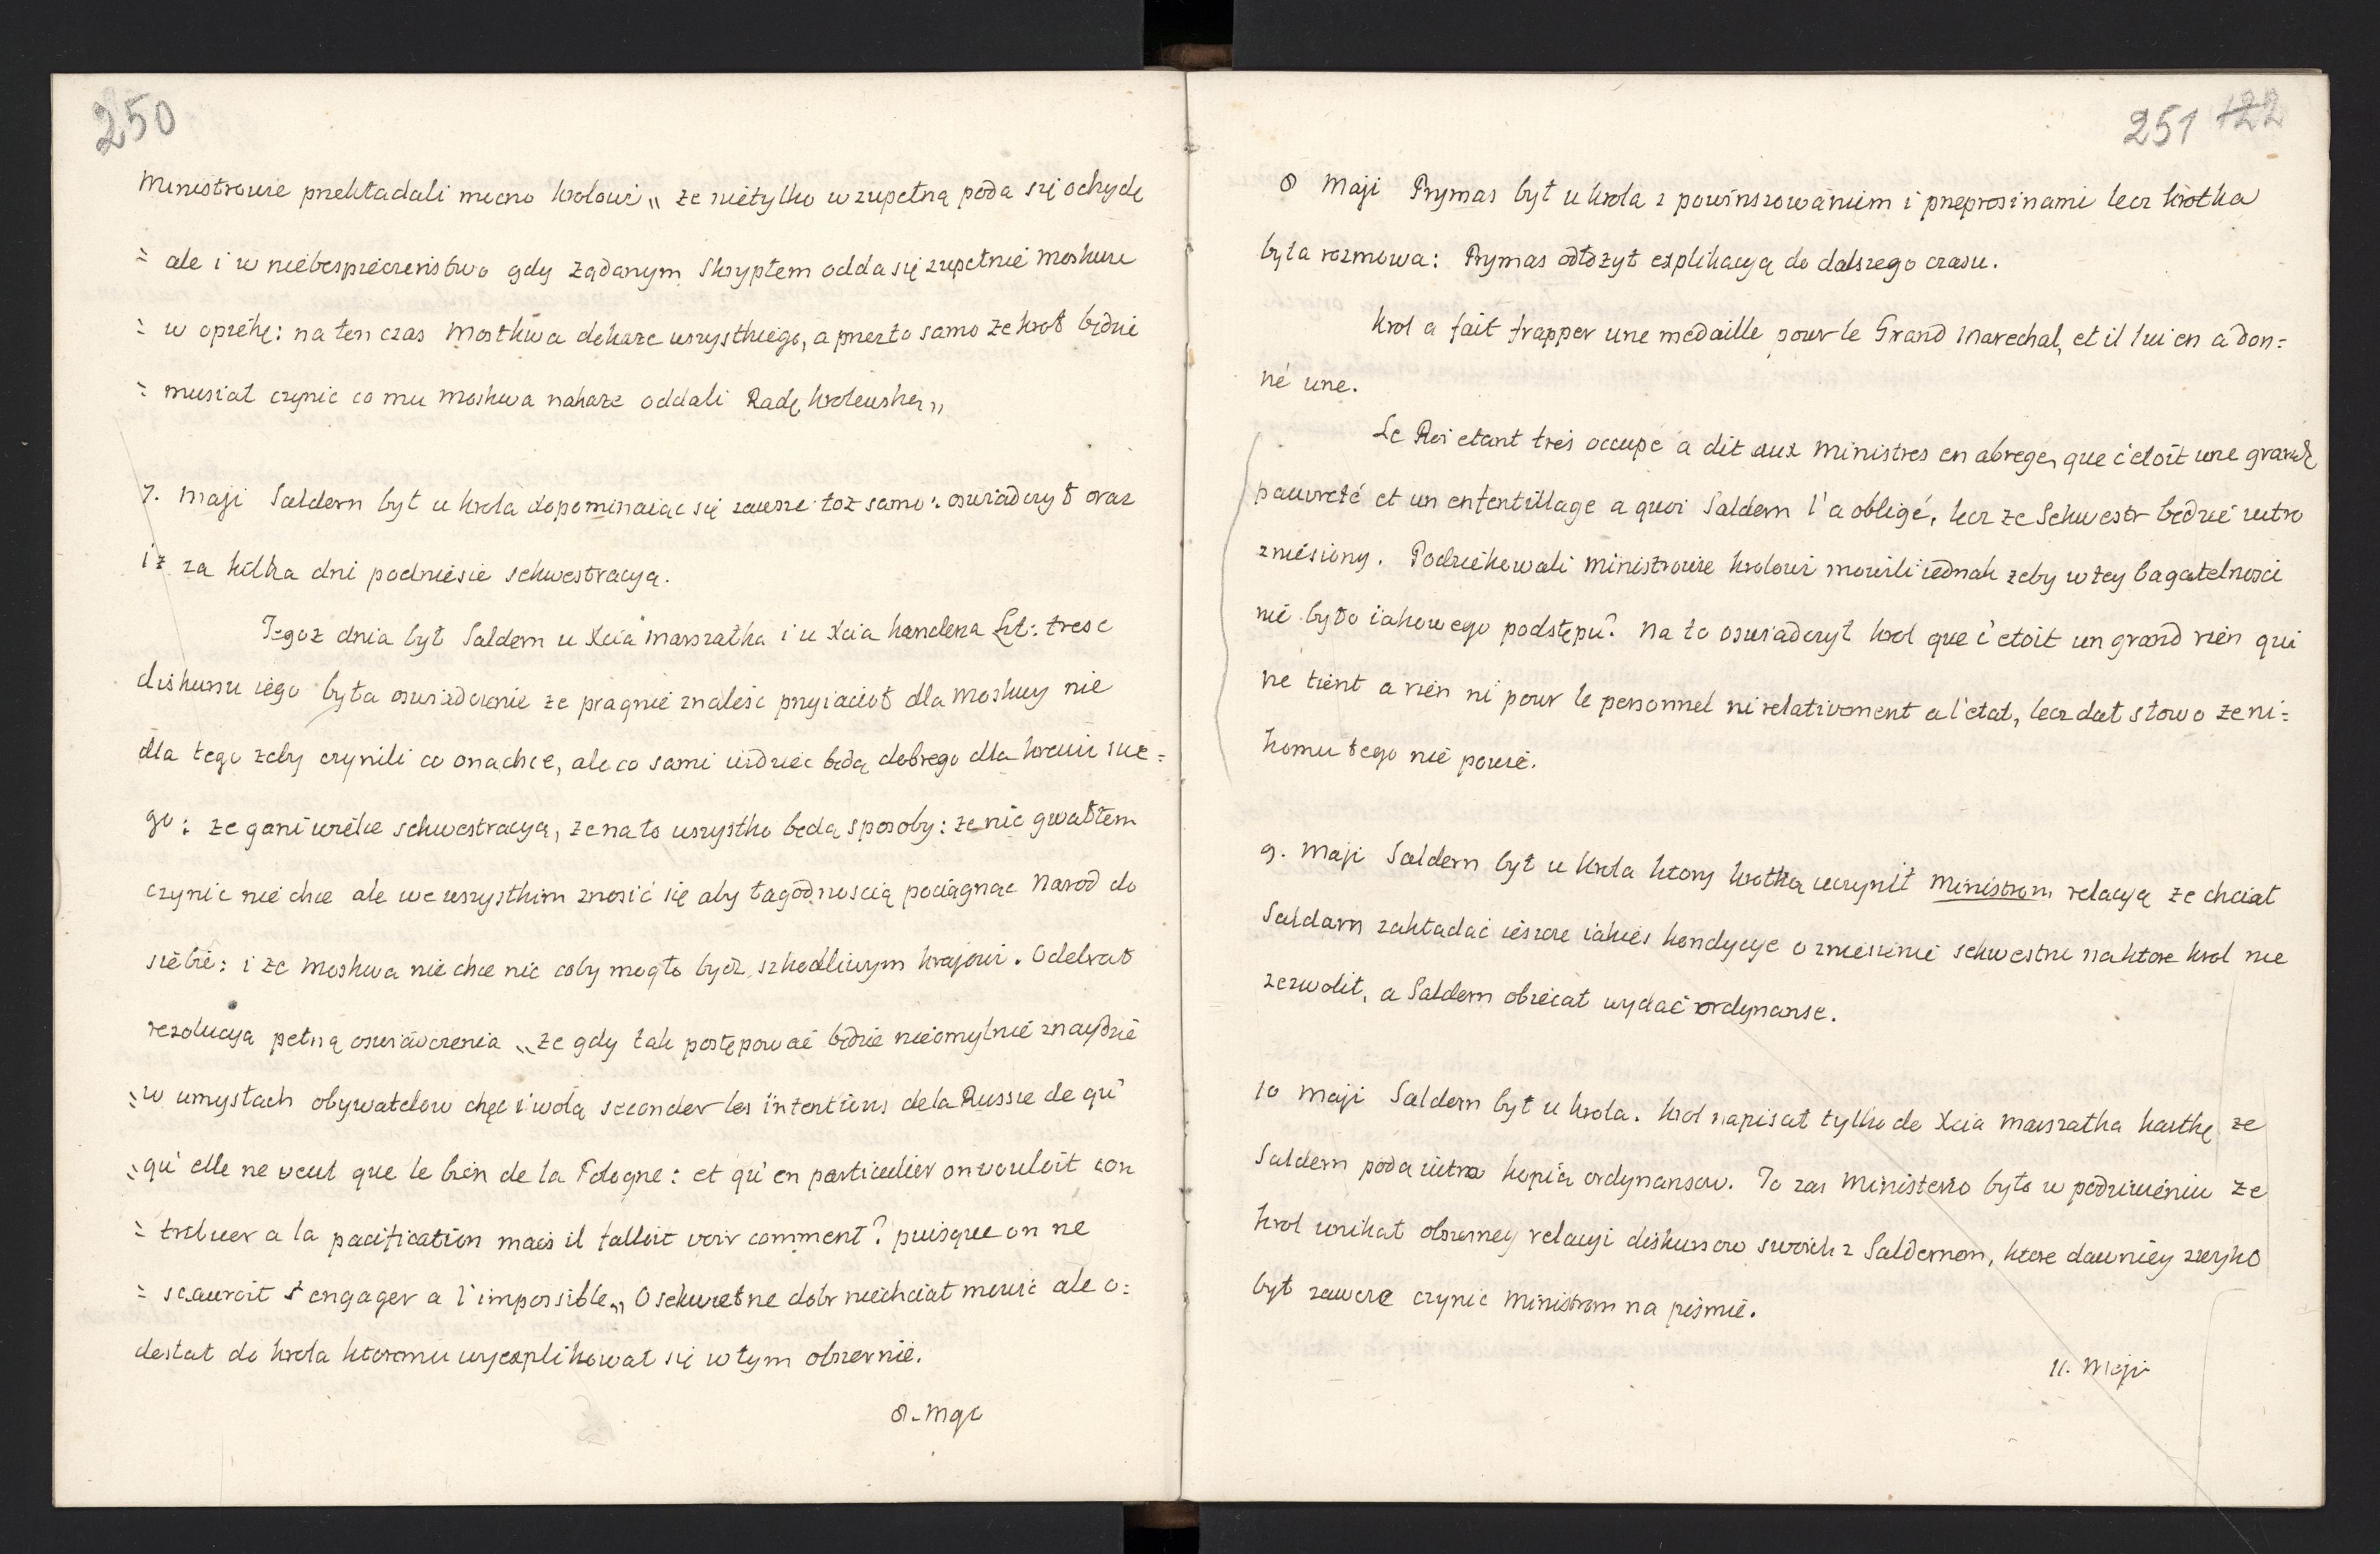 250
Ministrowie przekładali mocno krolowi „ ze nietylko w zupełną poda się ochydę
= ale i w niebespieczeństwo gdy ządanym Skryptem odda się zupełnie Moskwie
= w opiekę: na ten czas Moskwa dokaze wszystkiego, a przezto samo ze krol będzie
= musiał czynic co mu Moskwa nakaze oddali Radę krolewską „
7. Maji Saldern był u krola dopominaiąc się zawsze toz samo: oswiadczył oraz
iz za kilka dni podniesie sekwestracyą.
Tegoz dnia był Saldern u Xcia Marszałka i u Xcia kanclerza Lit: tresc
diskursu iego była oswiadczenie ze pragnie znalesc przyiacioł dla Moskwy nie
dla tego zeby czynili co ona chce, ale co sami widziec będą dobrego dla kraiu swe=
go: ze gani wielce sekwestracyą, ze na to wszystko będą sposoby: ze nic gwałtem
czynic nie chce ale we wszystkim znosić się aby łagodnoscią pociągnąc Narod do
siebie: i ze Moskwa nie chce nic coby mogło bydz szkodliwym krajowi. Odebrał
rezolucyą pełną oswiadczenia „ze gdy tak postępowac będzie nieomylnie znaydzie
„w umysłach obywatelow chęc i wolą seconder les intentions de la Russie de qu'
„qu' elle ne veut que le bien de la Pologne: et qu' en particulier on vouloit con
= tribuer a la pacification mais il falloit voir comment? puisque on ne
= scauroit s'engager a l'impossible„ O sekwestrze dobr niechciał mowić ale o=
desłał do krola ktoremu wyexplikował się w tym obszernie.
8. Maji
251 122
8 Maji Prymas był u krola z powinszowaniem i przeprosinami lecz krotka
była rozmowa: Prymas odłozył explikacyą do dalszego czasu.
krol a fait frapper une medaille pour le Grand Marechal, et il lui en a don=
né une.
Le Roi etant tres occupe a dit aux Ministres en abrege, que c'etoit une grande
pauvreté et un ententillage a quoi Saldern l'a obligé, lecz ze Sekwestr będzie iutro
zniesiony. Podziękowali Ministrowie krolowi mowili iednak zeby w tey bagatelnosci
nie było iakowego podstępu? Na to oswiadczył krol que c'etoit un grand rien qui
ne tient a rien ni pour le personnel ni relativement a l'etat, lecz dał słowo ze ni=
komu tego nie powie.
9. Maji Saldern był u krola ktory krotką uczynił Ministrom relacyą ze chciał
Saldern zakładać ieszcze iakies kondycye o zniesienie sekwestru na ktore krol nie
zezwolił, a Saldern obiecał wydać ordynanse.
10 Maji Saldern był u krola. krol napisał tylko do Xcia Marszałka kartkę ze
Saldern poda iutro kopią ordynansow. To zas Ministerio było w podziwieniu ze
krol unikał obszerney relacyi diskursow swoich z Saldernem, ktore dawniey zwykł
był zawsze czynic Ministrom na pismie.
11. Maji